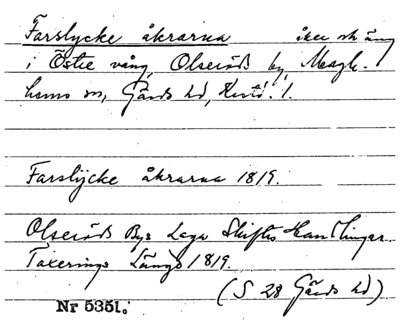 Farslycke åkrarna åker och äng
i Östre vång, Olseröds by, Magle-
hems sn, Gärds hd, Krist. l.
Farslÿcke åkrarna 1819.
Olseröds Bys Laga Skiftes Handlingar.
Taxerings Längd 1819.
(S 28 Gärds hd)
Nr 5351.